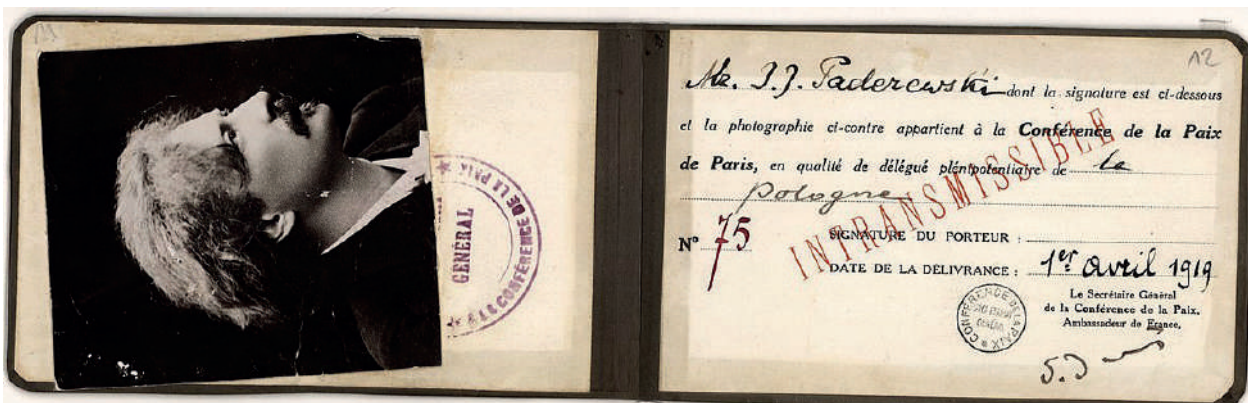 11
GENERAL
DE LA CONFÉRENCE DE LA PAIX
12
Mr. I. J. Paderewski dont la signature est ci-dessous
et la photographie ci-contre appartient à la Conférence de la Paix
de Paris, en qualité de délégué plénipotentiaire de la
Pologne
INTRANSMISSIBLE
N° 75
SIGNATURE DU PORTEUR :
DATE DE LA DÉLIVRANCE : 1er avril 1919
Le Secrétaire Général
de la Conférence de la Paix,
Ambassadeur de France,
CONFÉRENCE DE LA PAIX